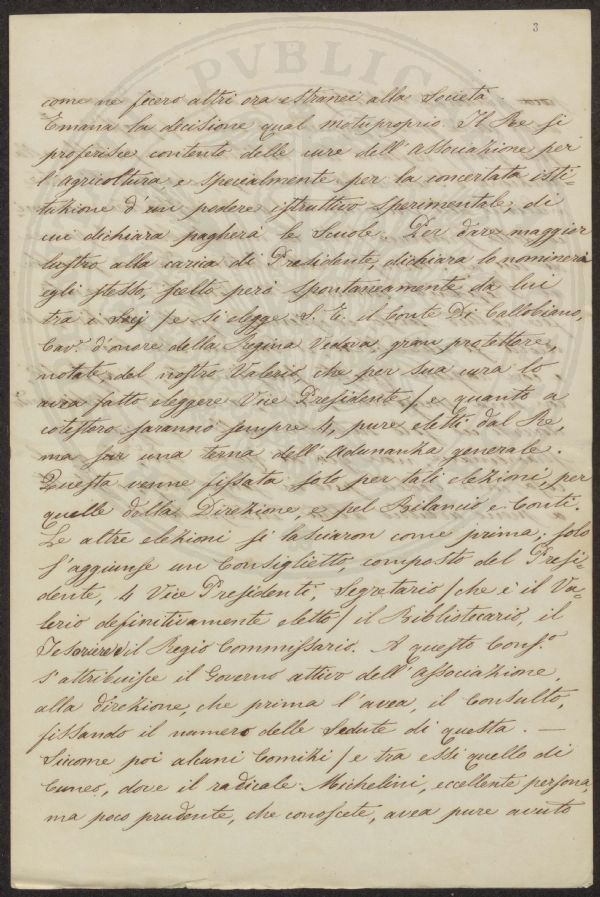 3
PVBLIC
come ne fecero altri ora estranei alla Società
Emana la decisione qual motuproprio. Il Re si
proferisce contento delle cure dell'Associazione per
l'agricoltura e specialmente per la concertata isti-
tuzione d'un podere istruttivo sperimentale, di
cui dichiara pagherà le Scuole. Per dare maggior
lustro alla carica di Presidente, dichiara lo nominerà
egli stesso, scelto però spontaneamente da lui
tra i Socj /e si elegge S. E. il Conte Di Callobiano,
Cav.e d'onore della Regina Vedova gran protettore,
notate, del nostro Valerio, che per sua cura lo
avea fatto eleggere Vice Presidente/, e quanto a
cotestoro saranno sempre 4, pure eletti dal Re,
ma sur una terna dell'Adunanza generale.
Questa venne fissata solo per tali elezioni, per
quelle della Direzione e pel Bilancio e Conti.
Le altre elezioni si lasciaron come prima; solo
s'aggiunse un Consiglietto, composto del Presi-
dente, 4 Vice Presidenti, Segretario /che è il Va-
lerio definitivamente eletto/ il Bibliotecario, il
Tesoriere il Regio Commissario. A questo Cons.o
s'attribuisce il Governo attivo dell'Associazione,
alla direzione, che prima l'avea, il Consulto,
fissando il numero delle Sedute di questa. —
Siccome poi alcuni Comizi /e tra essi quello di
Cuneo, dove il radicale Michelini, eccellente persona,
ma poco prudente, che conoscete, avea pure avuto